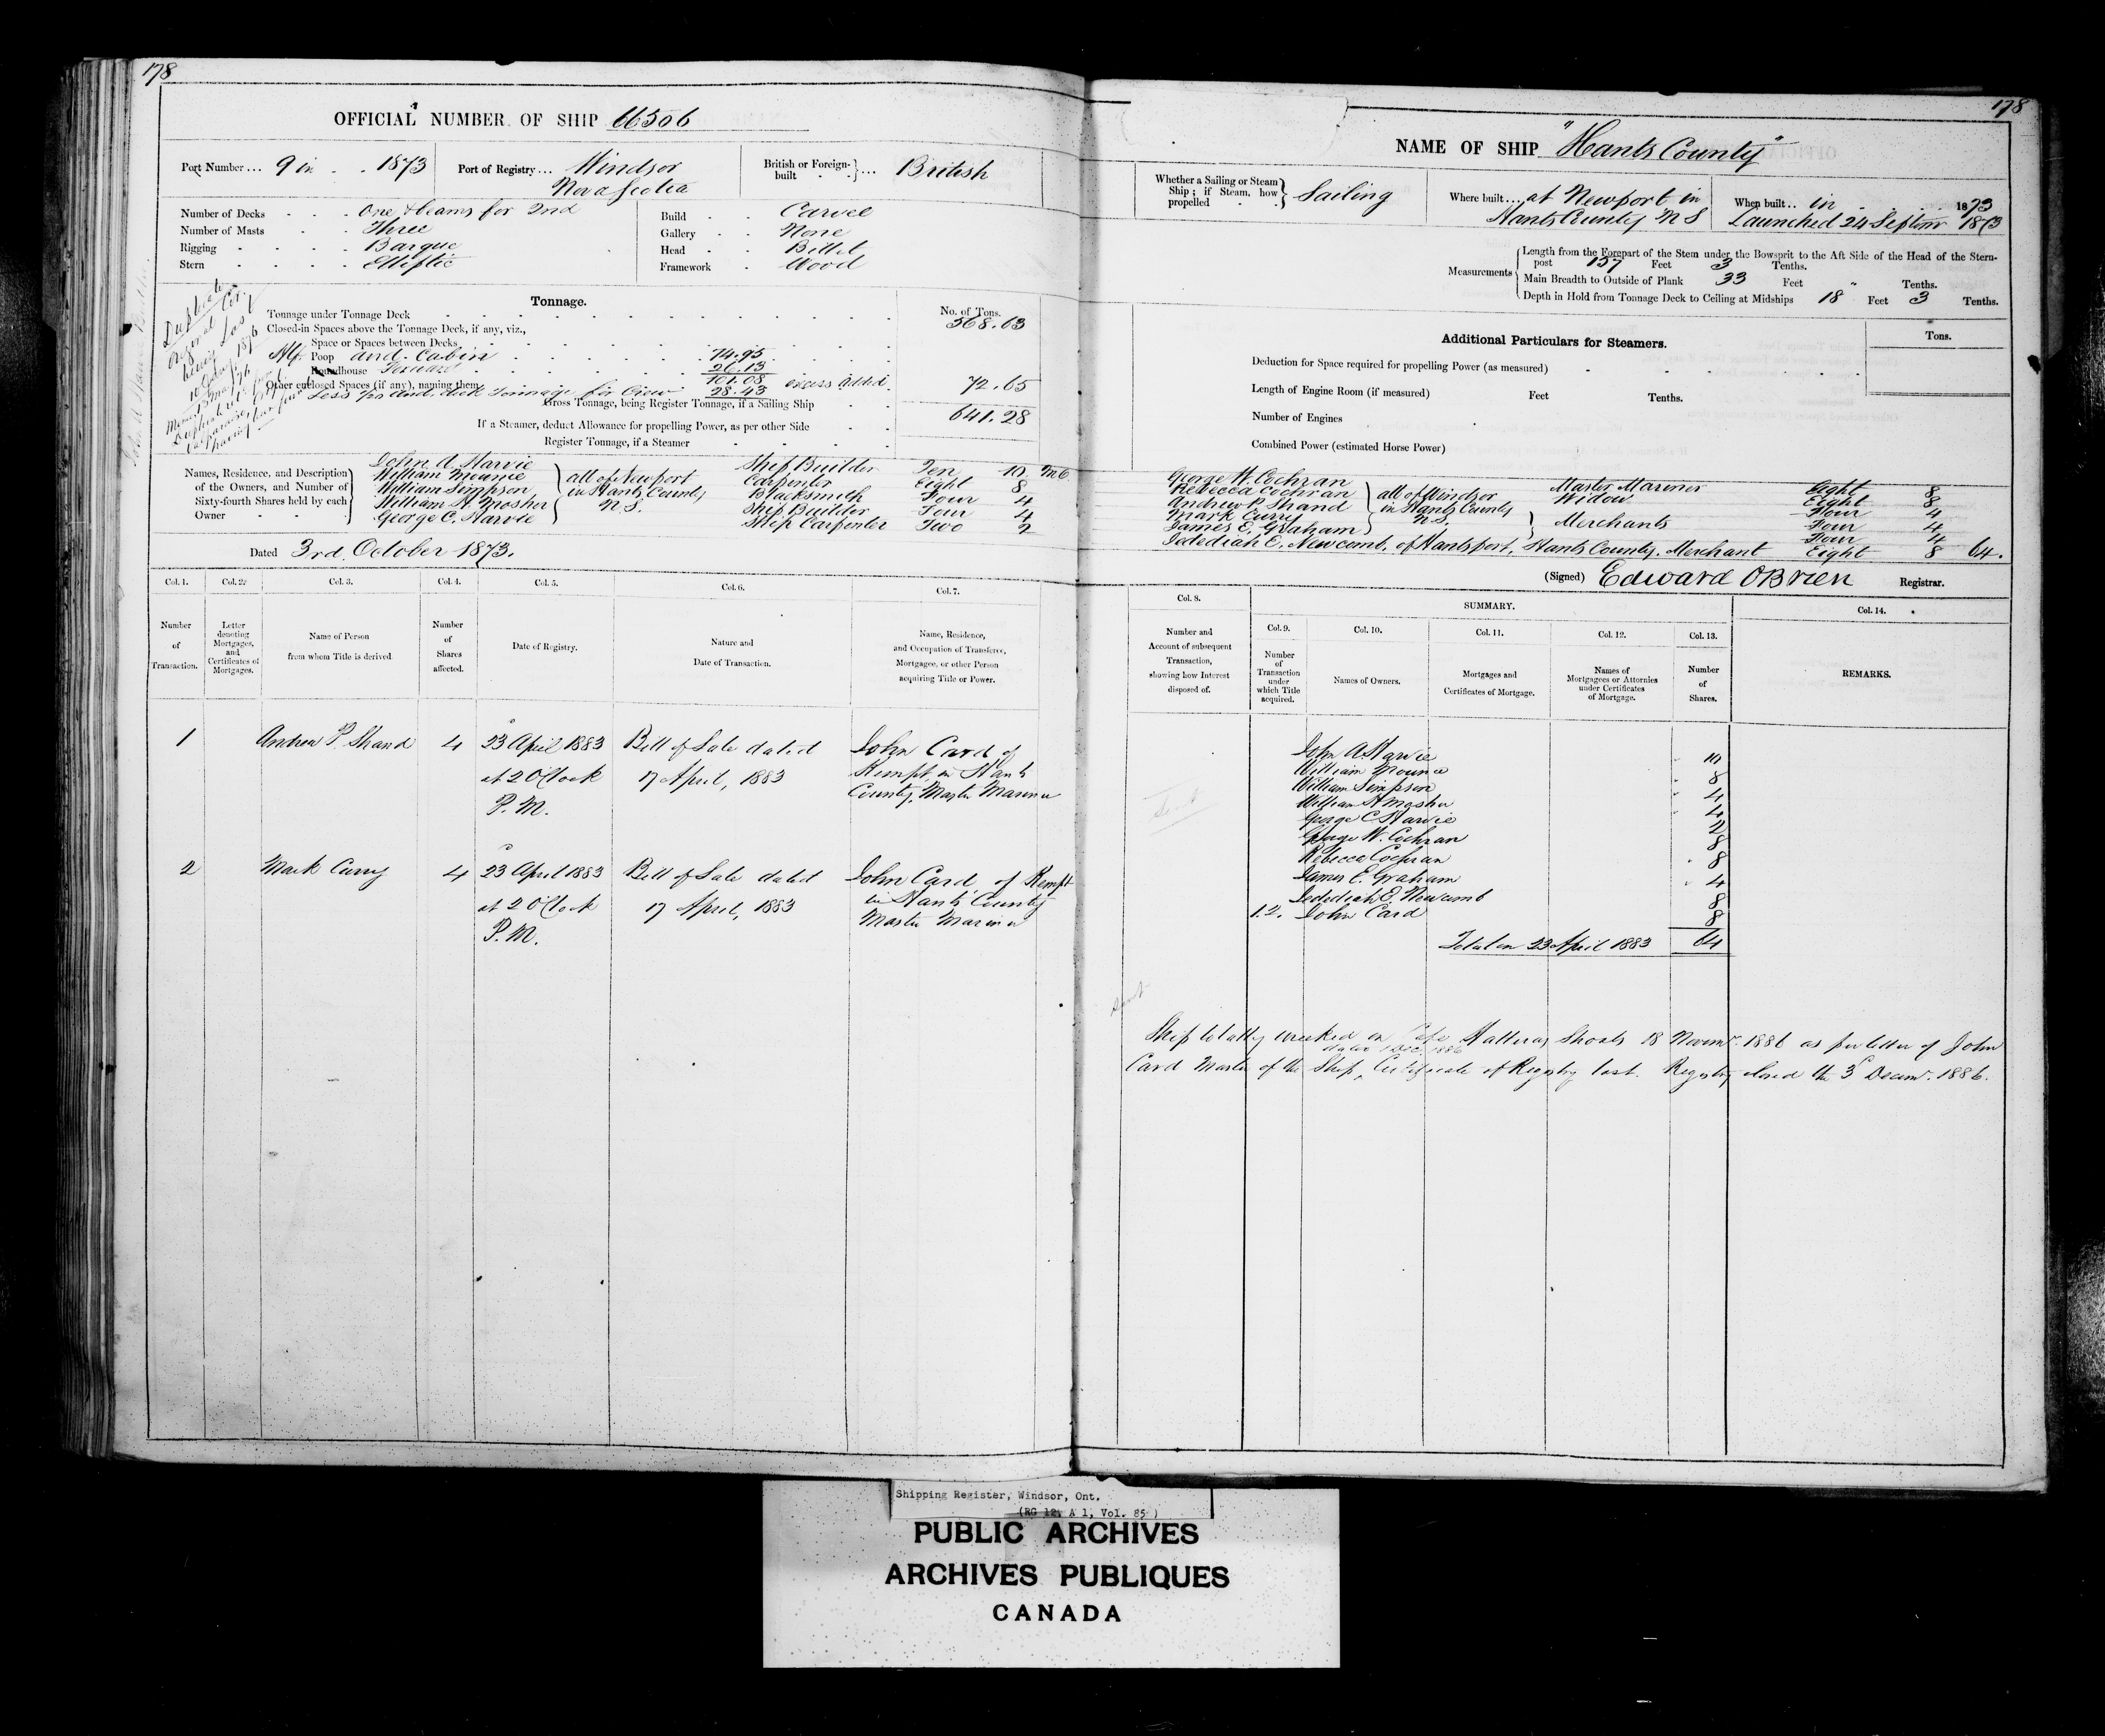 178
OFFICIAL NUMBER OF SHIP 66506
Port Number... 9 in . . 1873
Port of Registry... Windsor
Nova Scotia
British or Foreign-built ... British
Number of Decks - - - One & beams for 2nd
Number of Masts - - - Three
Rigging - - - - Barque
Stern - - - - Elliptic
Build - - Carvel
Gallery - - None
Head - - Billet
Framework - Wood
Tonnage.
No. of Tons.
Tonnage under Tonnage Deck 568.63
Closed-in Spaces above the Tonnage Deck, if any, viz.,
Space or Spaces between Decks
Poop and Cabin 74.95
Roundhouse Forward 26.13
Other enclosed Spaces (if any), naming them 101.08 excess added 72.65
Less deck Tonnage for Crew 28.43
Gross Tonnage, being Register Tonnage, if a Sailing Ship 641.28
If a Steamer, deduct Allowance for propelling Power, as per other Side
Register Tonnage, if a Steamer
Names, Residence, and Description of the Owners, and Number of Sixty-fourth Shares held by each Owner
John A. Harvie Ship Builder Ten 10
William Mounce Carpenter Eight 8
William Simpson all of Newport in Hants County N.S. Blacksmith Four 4
William H. Mosher Ship Builder Four 4
George C. Harvie Ship Carpenter Two 2
Dated 3rd October 1873.
Col. 1. Col. 2. Col. 3. Col. 4. Col. 5. Col. 6. Col. 7.
Number of Transaction.
Letter denoting Mortgages, and Certificates of Mortgages.
Name of Person from whom Title is derived
Number of Shares affected.
Date of Registry.
Nature and Date of Transaction.
Name, Residence, and Occupation of Transferee, Mortgagee, or other Person acquiring Title or Power.
1 Andrew P. Shand 4 23 April 1883 Bill of Sale dated John Card of
at 2 O'Clock 17 April, 1883 Kempt, in Hants
P.M. County, Master Mariner
2 Mark Curry 4 23 April 1883 Bill of Sale dated John Card of Kempt
at 2 O'Clock 17 April, 1883 in Hants County
P.M. Master Mariner
178
NAME OF SHIP "Hants County"
Whether a Sailing or Steam Ship; if Steam, how propelled Sailing
Where built.... at Newport in
Hants County N S
When built.. in . . . . 1873
Launched 24 Septemr 1873
Measurements
Length from the Forepart of the Stem under the Bowsprit to the Aft Side of the Head of the Stern-
post 157 Feet 3 Tenths.
Main Breadth to Outside of Plank 33 Feet " Tenths.
Depth in Hold from Tonnage Deck to Ceiling at Midships 18 Feet 3 Tenths.
Additional Particulars for Steamers.
Tons.
Deduction for Space required for propelling Power (as measured)
Length of Engine Room (if measured) Feet Tenths.
Number of Engines
Combined Power (estimated Horse Power)
George W. Cochran Master Mariner Eight 8
Rebecca Cochran Widow Eight 8
Andrew P. Shand all of Windsor in Hants County N.S. Four 4
Mark Curry Merchants Four 4
James E. Graham Four 4
Jedediah E. Newcomb, of Hantsport, Hants County, Merchant Eight 8 64.
(Signed) Edward OBrien Registrar.
Col. 8.
SUMMARY.
Col. 14.
Col. 9. Col. 10. Col. 11. Col. 12. Col. 13.
Number and Account of subsequent Transaction, showing how Interest disposed of.
Number of Transaction under which Title acquired.
Names of Owners.
Mortgages and Certificates of Mortgage.
Names of Mortgagees or Attornies under Certificates of Mortgage.
Number of Shares.
REMARKS.
John A Harvie 10
William Mounce 8
William Simpson 4
William H Mosher 4
George C Harvie 2
George W. Cochran 8
Rebecca Cochran 8
James E. Graham 4
Jedediah E. Newcomb 8
1.2. John Card 8
Total on 23 April 1883 64
Ship totally wrecked on Cape Hatteras Shoals 18 Novemr. 1886 as per letter of John
dated 1 Dec. 1886
Card Master of the Ship, Certificate of Registry lost. Registry closed the 3d Decemr. 1886.
Shipping Register, Windsor, Ont.
(RG 12, A 1, Vol. 85 )
PUBLIC ARCHIVES
ARCHIVES PUBLIQUES
CANADA